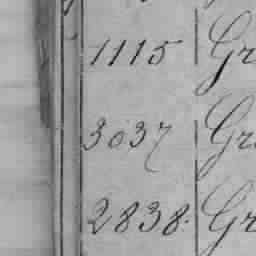 1115 Gr
3037 Gr
2838. Gr